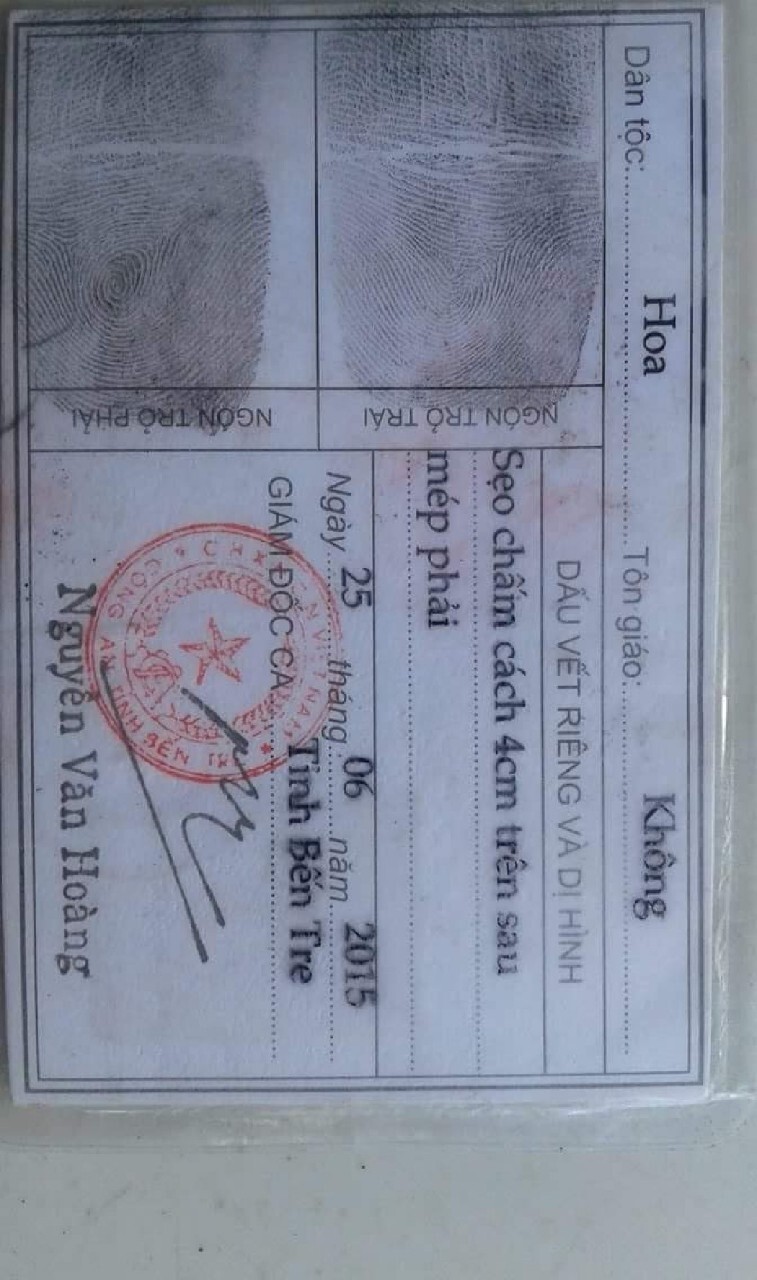 Dân tộc: Hoa Tôn giáo: Không
NGÓN TRỎ TRÁI
NGÓN TRỎ PHẢI
DẤU VẾT RIÊNG VÀ DỊ HÌNH
Sẹo chấm cách 4cm trên sau
mép phải
Ngày 25 tháng 06 năm 2015
GIÁM ĐỐC CA Tỉnh Bến Tre
CÔNG AN TỈNH BẾN TRE
Nguyễn Văn Hoàng